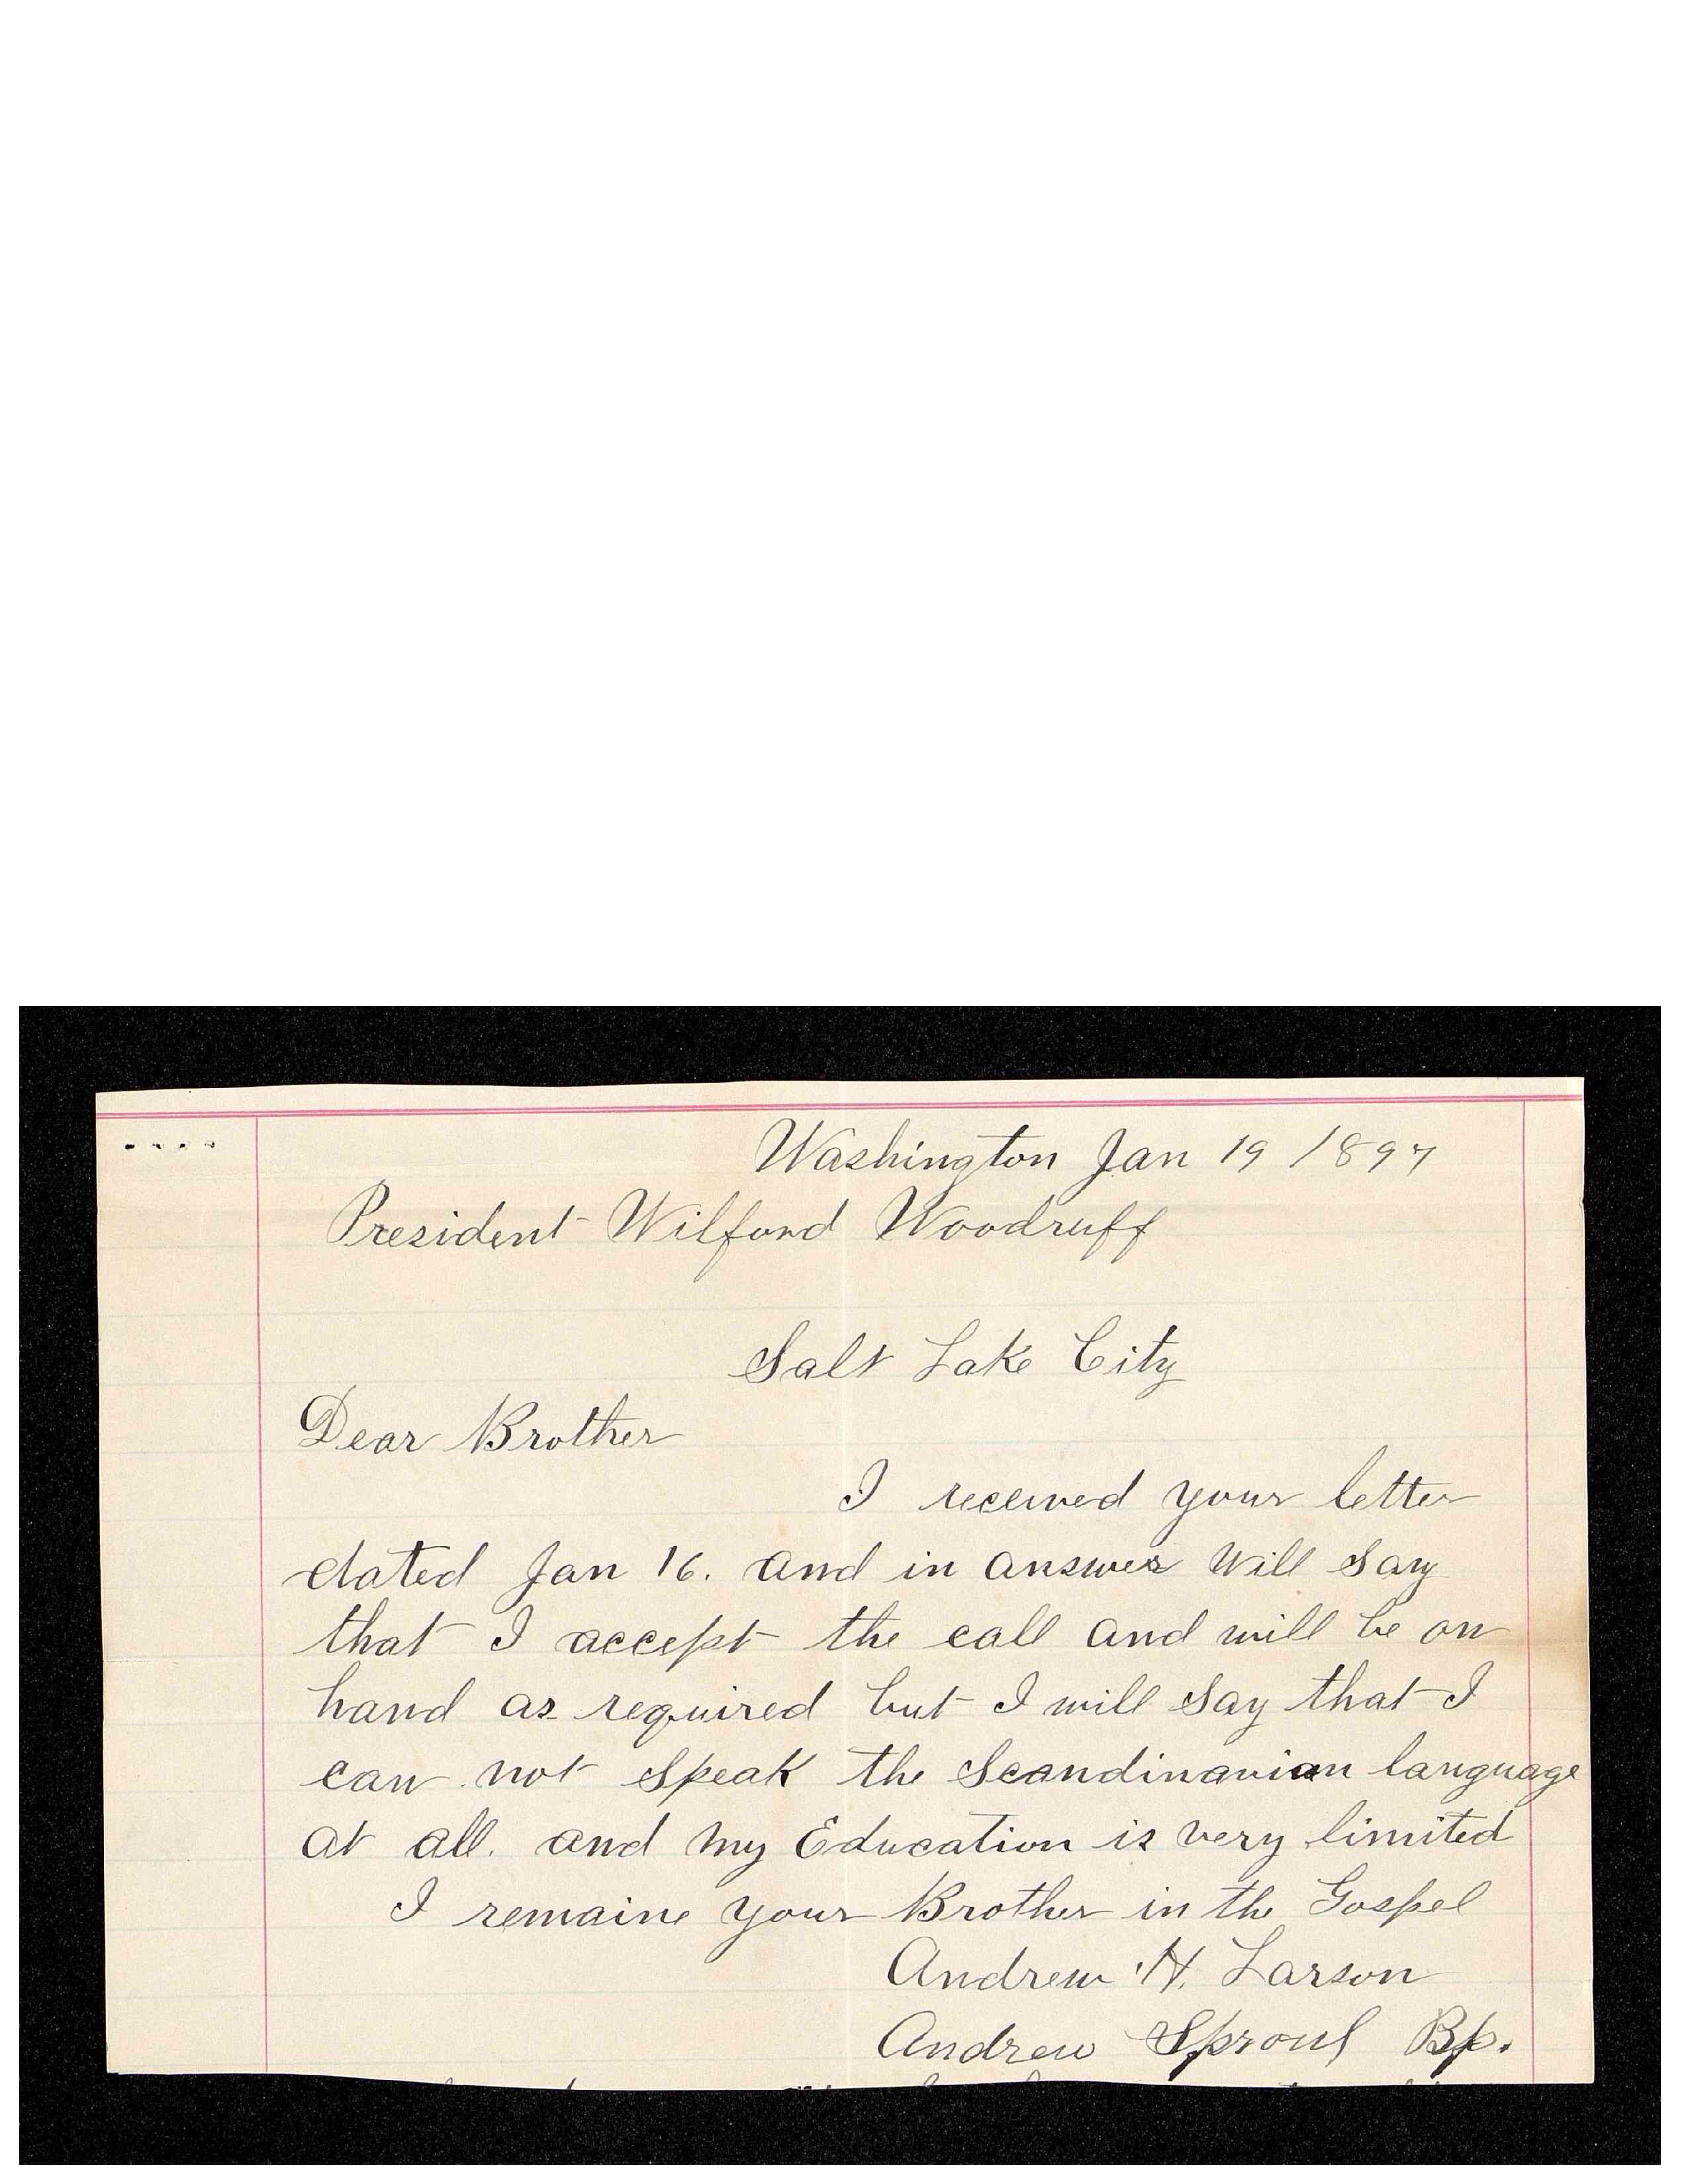 Washington Jan 19 1897
President Wilford Woodruff
Salt Lake City
Dear Brother
I received your letter
dated Jan 16. and in answer Will Say
that I accept the call and will be on
hand as required but I will Say that I
can not Speak the Scandinavian language
at all. and my Education is very limited
I remaine your Brother in the Gospel
Andrew N. Larson
Andrew Sproul Bp.